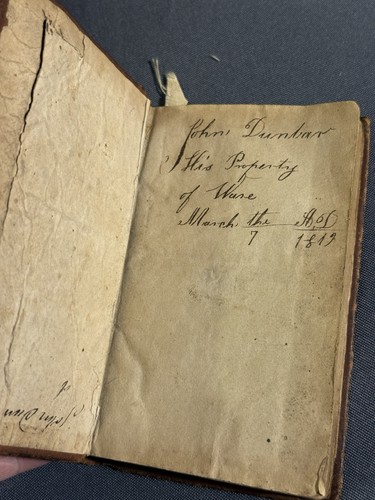 John Dunbar
His Property
of Ware
March the AD
7 1819
John Dun